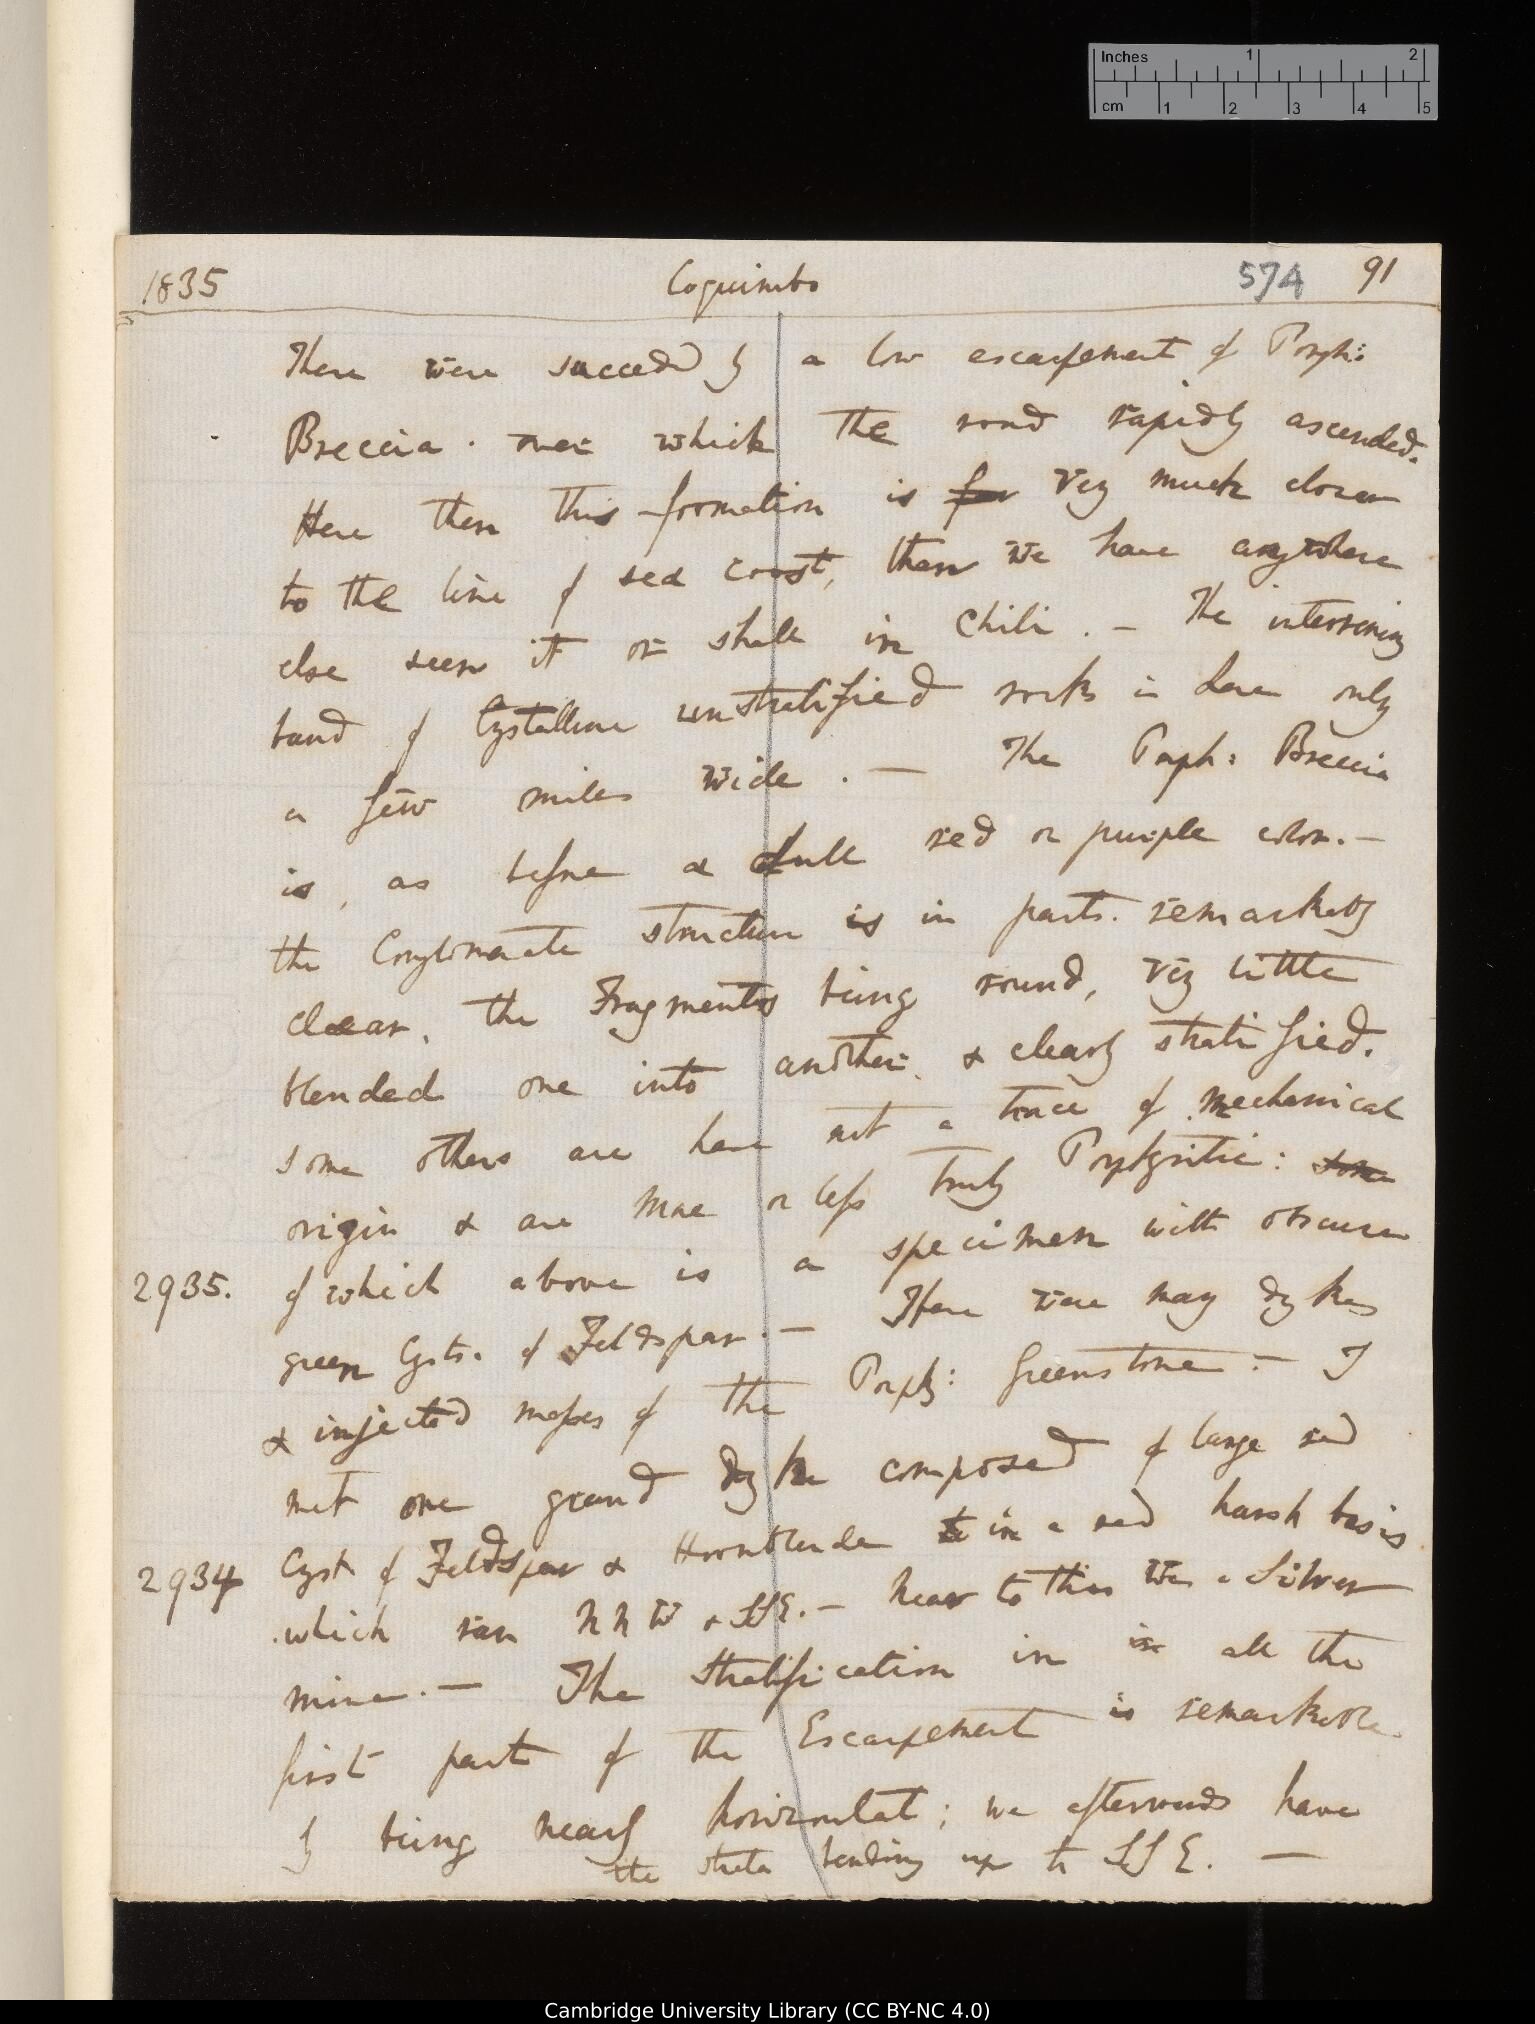 Inches 1 2
cm 1 2 3 4 5
1835 Coquimbo 574 91
There were succeeded by a low escarpement of Porph:
Breccia. over which the road rapidly ascended.
Here then this formation is far very much closer
to the line of sea coast, than we have anywhere
else seen it or shall in Chili. — The intervening
band of Crystalline unstratified rocks is here only
a few miles wide. — The Porph: Breccia
is, as before a dull red or purple color. —
the Conglomerate structure is in parts. remarkably
clear, the Fragments being round, very little
blended one into another, & clearly stratified.
some others are have not a trace of mechanical
origin & are more or less truly Porphyritic: some
2935. of which above is a specimen with obscure
green Cryst. of Feldspar. — Here were many dykes
& injected masses of the Porph: Greenstone. — I
met one grand dyke composed of large red
2934 Cryst of Feldspar & Hornblende in a red harsh basis
which ran NNW & SSE. — Near to this was a Silver
mine. — The Stratification in all the
first part of the Escarpement is remarkable
by being nearly horizontal; we afterwards have
the strata bending up to SSE. —
Cambridge University Library (CC BY-NC 4.0)